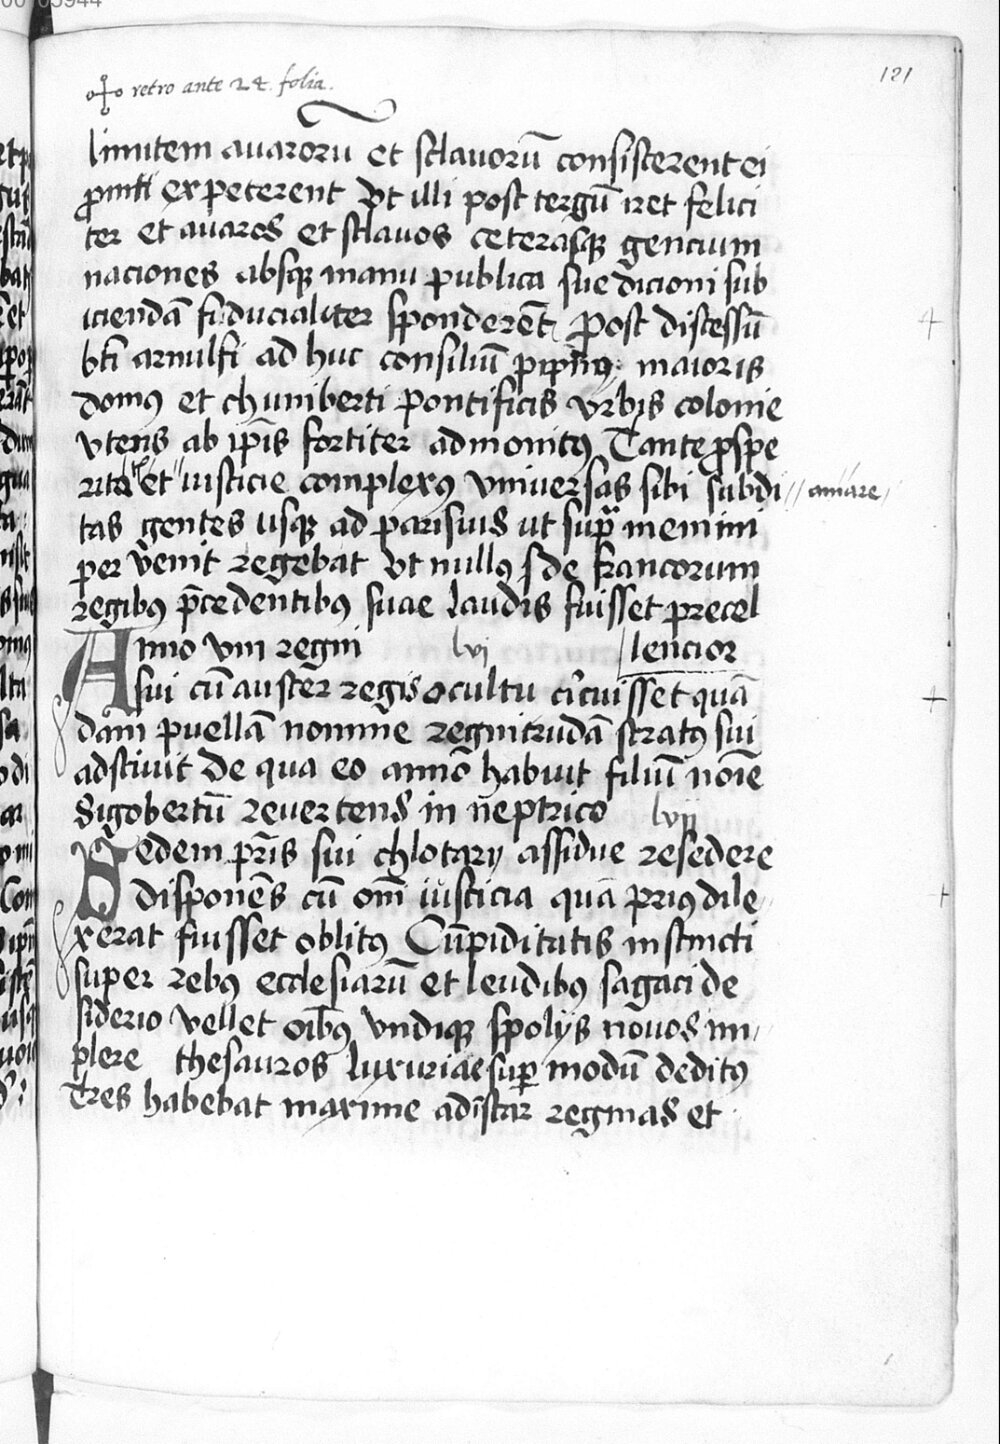 121
retro ante 24. folia.
limitem auaroru̅ et sclauoru̅ consisterent ei
ꝓmti expeterent vt illi post tergu̅ iret felici
ter et auaros et sclauos ceterasqꝫ gencium
naciones absqꝫ manu publica sue dicioni sub
icienda̅ fiducialiter spondere̅t Post discessu̅
bt̅i arnulfi ad huc consiliu̅ pipi̅nꝰ maioris
domꝰ et chuniberti pontificis vrbis colonie
vtens ab ip̅is fortiter admonitꝰ Tante ꝓspe
rita et iusticie complexꝰ vniuersas sibi subdi // amare /
tas gentes usqꝫ ad parisius ut supra memini
per venit regebat vt nullꝰ de francorum
regibꝰ p̅cedentibꝰ suae laudis fuisset precel
Anno viii regni lvi lencior
sui cu̅ auster regis ocultu circuisset qua̅
dam puella̅ nomine regnitruda̅ stratꝰ sui
adsciuit De qua eo anno habuit filiu̅ no̅ie
Sigobertu̅ reuertens in neptrico lvij
Sedem pr̅is sui chlotarij assidue resedere
disponens cu̅ om̅i iusticia qua̅ priꝰ dile
xerat fuisset oblitꝰ Cupiditatis instincti
super rebꝰ ecclesiaru̅ et leudibꝰ sagaci de
siderio vellet oi̅bꝰ vndiqꝫ spolijs nouos im
plere thesauros luxuriae super modu̅ deditꝰ
Tres habebat maxime ad i̅star reginas et